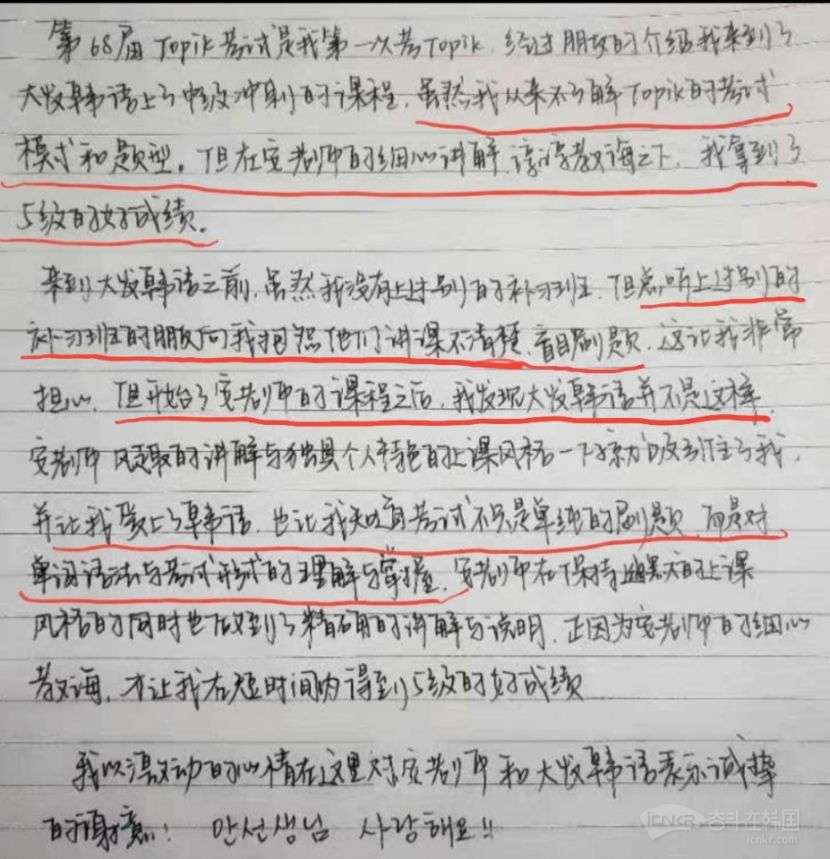 第68届Topik考试是我第一次考Topik，经过朋友的介绍我来到了
大发韩语上了中级冲刺的课程，虽然我从来不了解Topik的考试
模式和题型。但在安老师的细心讲解，谆谆教诲之下，我拿到了
5级的好成绩。
来到大发韩语之前，虽然我没有上过别的补习班，但总听上过别的
补习班的朋友向我抱怨他们讲课不清楚，盲目刷题，这让我非常
担心，但开始了安老师的课程之后，我发现大发韩语并不是这样，
安老师风趣的讲解与独具个人特色的上课风格一下就吸引住了我，
并让我爱上了韩语，也让我知道考试不只是单纯的刷题，而是对
单词语法与考试形式的理解与掌握，安老师在保持幽默的上课
风格的同时也做到了精确的讲解与说明，正因为安老师的细心
教诲，才让我在短时间内得到5级的好成绩
我以激动的心情在这里对安老师和大发韩语表示诚挚
的谢意！ 안선생님 사랑해요!!
iCNKR·奋斗在韩国
icnkr.com